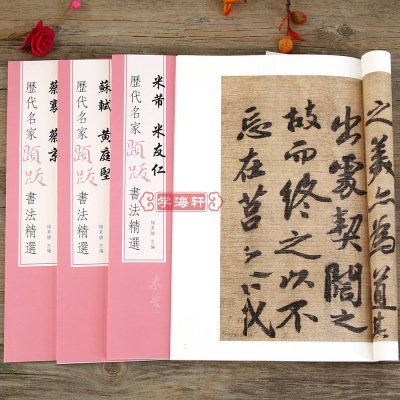 蔡襄 蔡京
歷代名家題跋書法精選
楊東勝 主編
蘇軾 黃庭堅
歷代名家題跋書法精選
楊東勝 主編
米芾 米友仁
歷代名家題跋書法精選
楊東勝 主編
米芾
学海轩
之美亦為道其
出處契闊之
故而終之以不
忘在莒